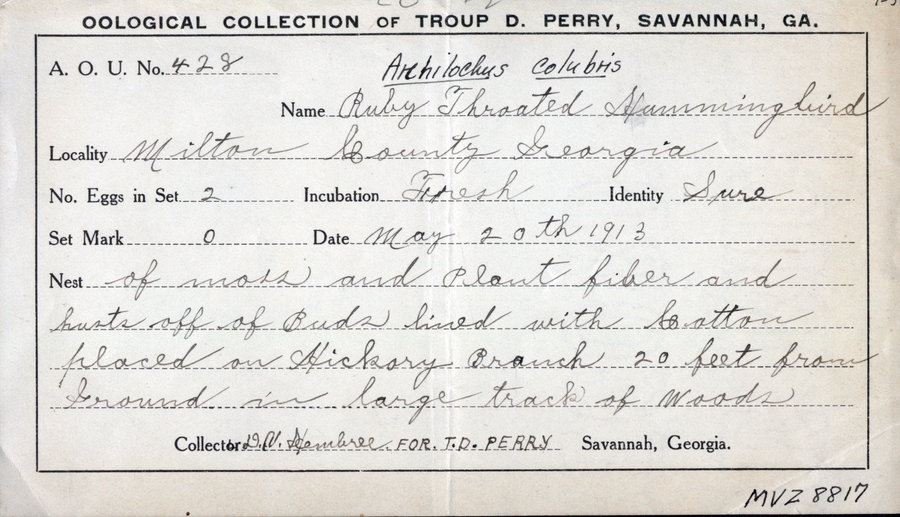 OOLOGICAL COLLECTION OF TROUP D. PERRY, SAVANNAH, GA.
A. O. U. No. 428 Archilochus colubris
Name Ruby Throated Hummingbird
Locality Milton County Georgia
No. Eggs in Set 2 Incubation Fresh Identity Sure
Set Mark 0 Date May 20th 1913
Nest of moss and Plant fiber and
husts off of Buds lined with Cotton
placed on Hickory Branch 20 feet from
Ground in large track of Woods
Collector Hembree FOR. T.D. PERRY Savannah, Georgia.
MVZ 8817